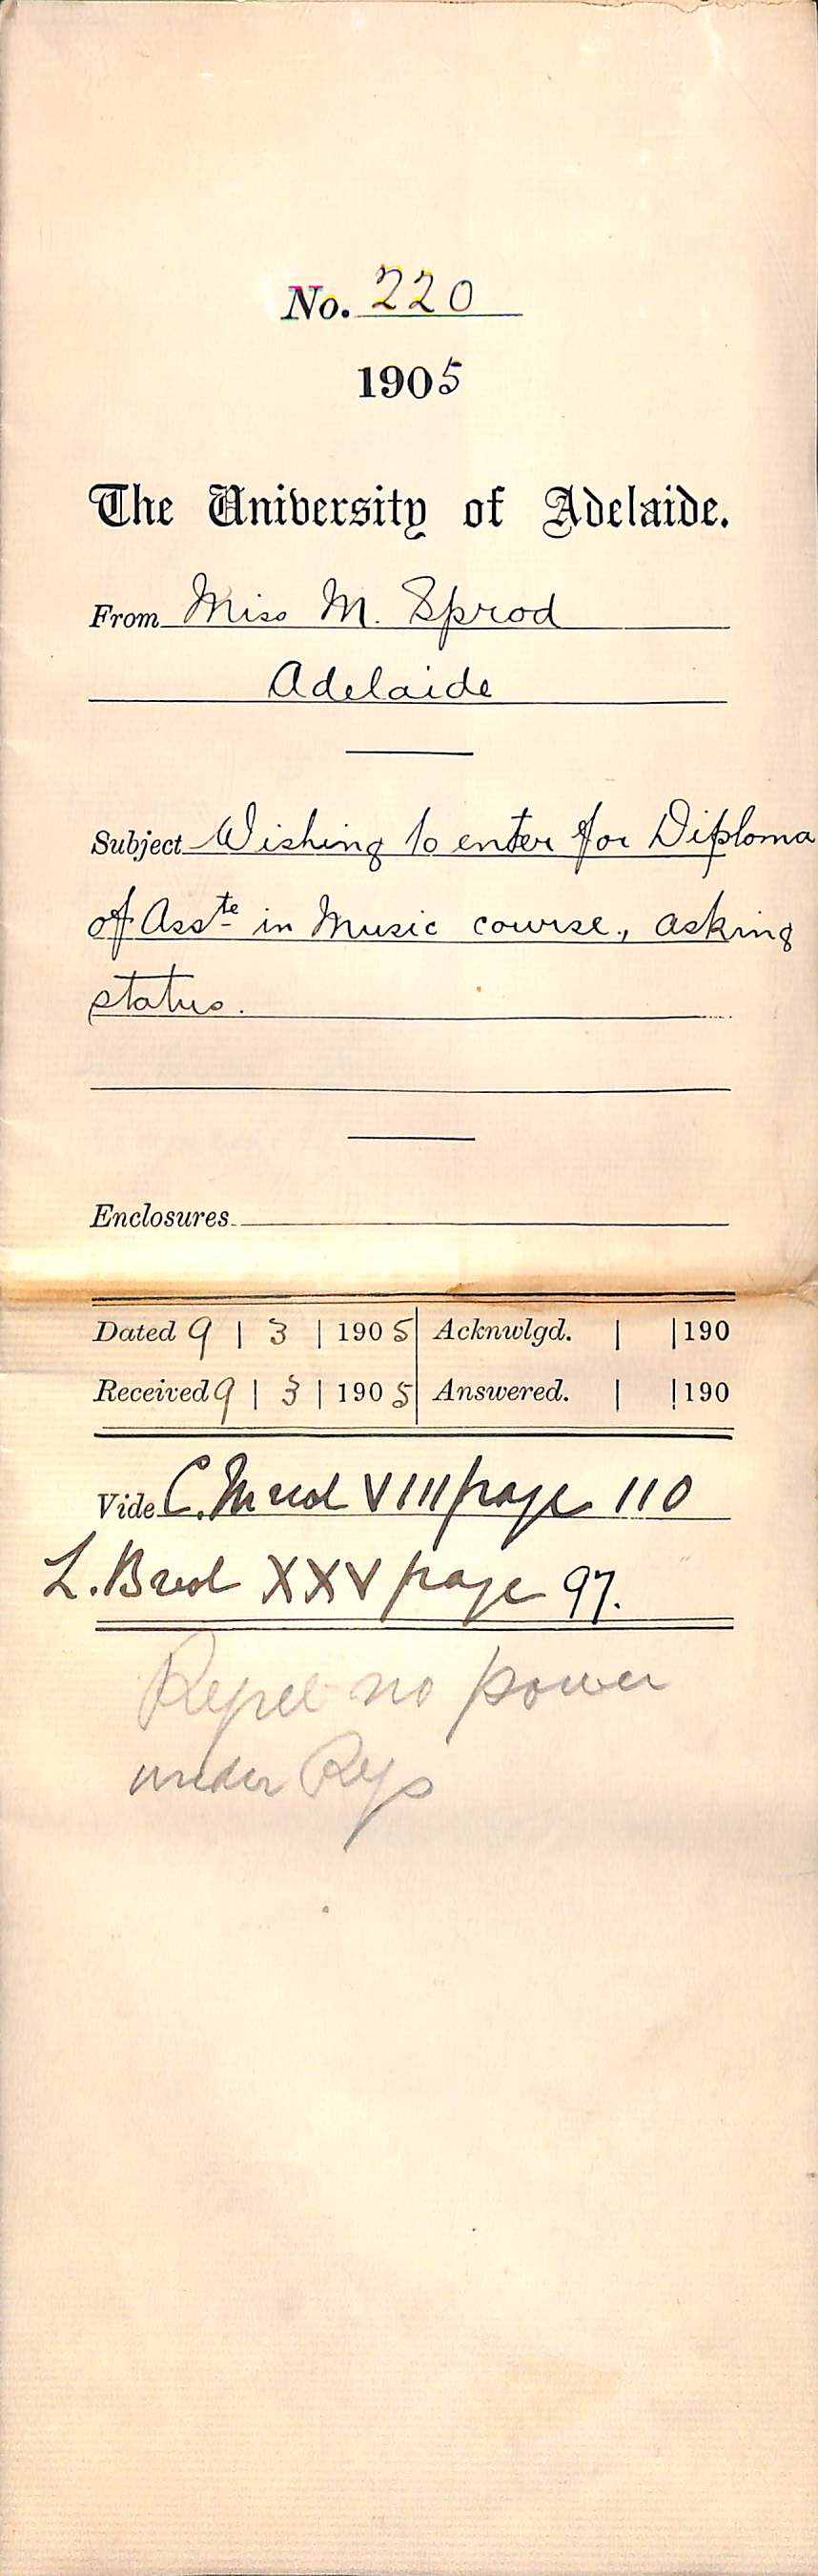 No. 220
1905
The University of Adelaide.
From Miss M. Sprod
Adelaide
Subject Wishing to enter for Diploma
of Asste in Music course, asking
status.
Enclosures
Dated 9 | 3 | 1905 Acknwlgd. | | 190
Received 9 | 3 | 1905 Answered. | | 190
Vide C.M vol VIII page 110
L.B vol XXV page 97.
no power
under Regs